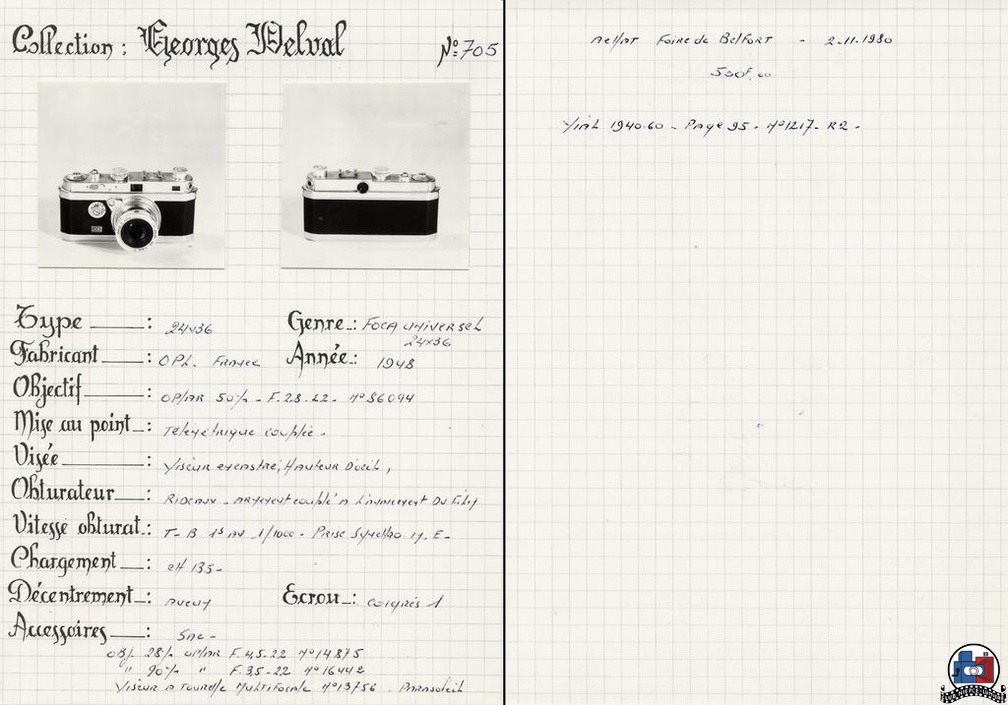 Collection : Georges Delval
N° 705
Type : 24x36
Genre : FOCA Universel
24x36
Fabricant : OPL. France
Année : 1948
Objectif : OPLAR 50% - F.2.8-22- N°86094
Mise au point : Télémétrique couplée -
Visée : Viseur Hauteur D'oeil,
Obturateur : Rideaux - Armement couplé à L'avancement Du Film
Vitesse obturat. : T- B 1s au 1/1000 - Prise Synchro M. E-
Chargement : EN 135-
Décentrement : Aucun
Ecrou : Congrès 1
Accessoires : Sac -
OBJ. 28% OPLAR F.4,5-22 N°14875
" 90% " F.3,5-22 N°16442
Viseur à Tourelle Multifocale N°13756 - Parasoleil
Achat Foire de Belfort - 2-11-1980
500F.00
Vial 1940.60 - Page 95 - N°1217- R2 -